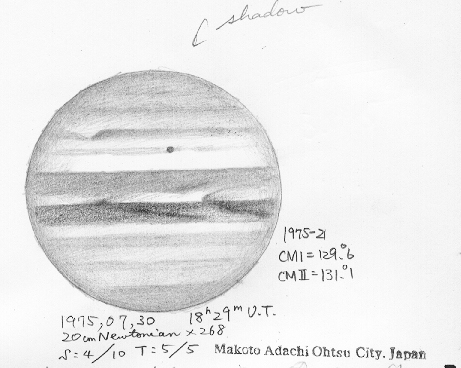 shadow
1975-21
CMI=129.°6
CMII=131.°1
1975, 07, 30 18h 29m U.T.
20cm Newtonian × 268
S:4/10 T:5/5 Makoto Adachi Ohtsu City. Japan